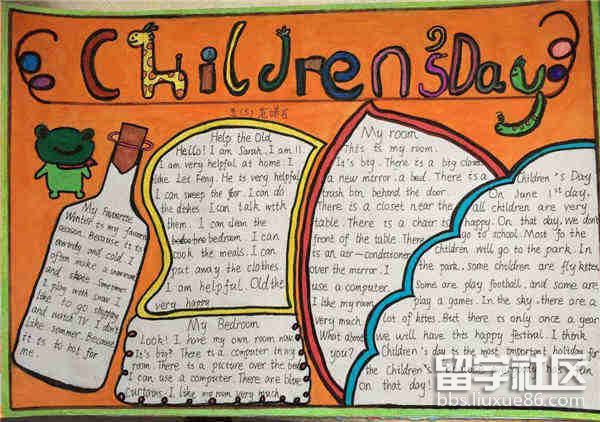 Children's Day
Help the Old
Hello! I am Sarah. I am 11.
I am very helpful at home. I
like Lei Feng. He is very helpful.
I can sweep the floor. I can do
the dishes. I can talk with
them. I can clean the
bedroom. I can
cook the meals. I can
put away the clothes.
I am helpful. Old the
very happy
My room
This is my room.
It's big. There is a big closet,
a new mirror, a bed. There is a
trash bin behind the door.
There is a closet near the
table. There is a chair is
front of the table. There
is an air-conditioner
over the mirror. I
use a computer.
I like my room
very much.
What about
you?
Children's Day
On June 1st day,
all children are very
happy. On that day, we don't
go to school. Most fo the
children will go to the park. In
the park, some children are fly kites,
Some are play football, and some are
play a games. In the sky, there are a
lot of kites. But there is only once a year
we will have this happy festival. I think
Children's day is the most important holiday for
the Children's
on that day!
My Favourite
Winter is my favourite
season. Because it is
and cold. I
often make a snowman
and Sometimes
I play with snow. I
like to go shopping
and watch TV. I don't
like summer. Because
it is to hot for
me.
My Bedroom
Look! I have my own room now.
It's big! There is a computer in my
room. There is a picture over the bed.
I can use a computer. There are blue
curtains. I like my room very much.
留学社区
bbs.liuxue86.com